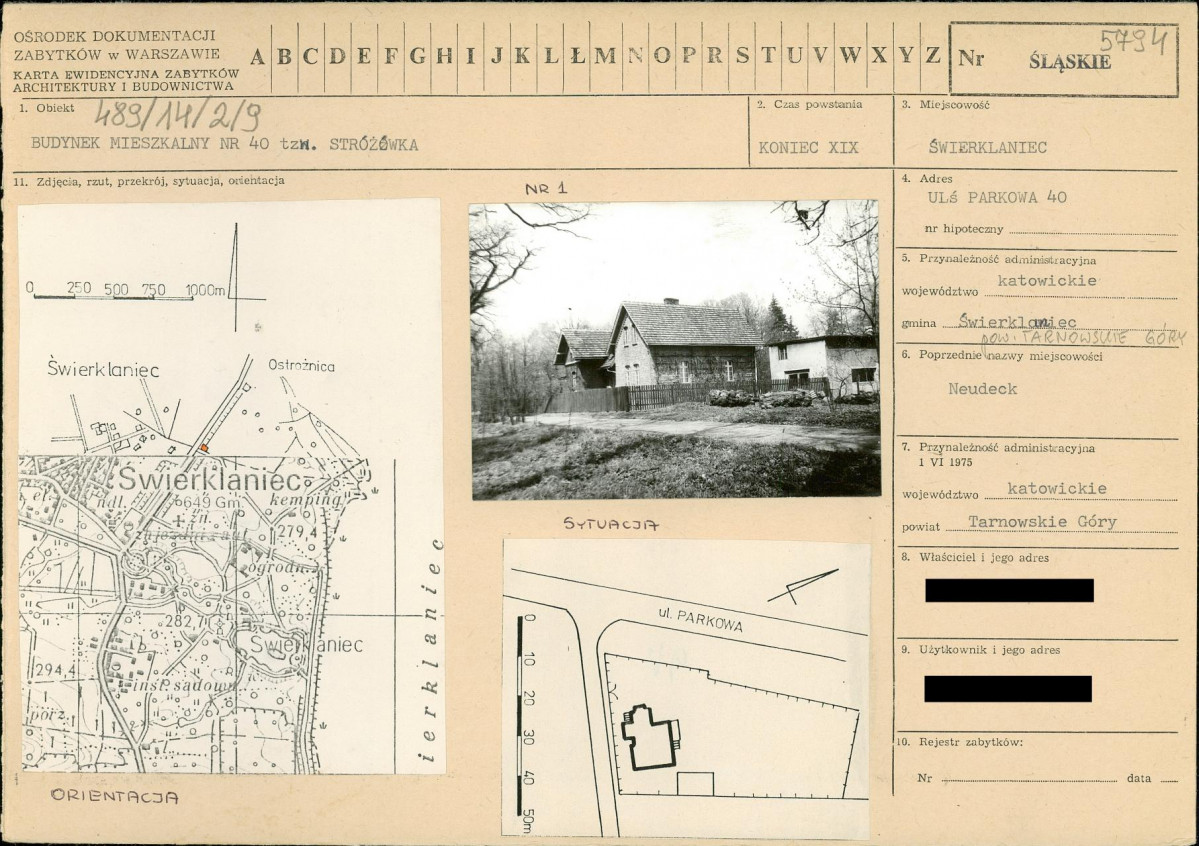 OŚRODEK DOKUMENTACJI
ZABYTKÓW w WARSZAWIE
KARTA EWIDENCYJNA ZABYTKÓW
ARCHITEKTURY I BUDOWNICTWA
A B C D E F G H I J K L Ł M N O P R S T U V W X Y Z
Nr ŚLĄSKIE
5794
1. Obiekt 489/14/2/9
BUDYNEK MIESZKALNY NR 40 tzw. STRÓŻÓWKA
2. Czas powstania
KONIEC XIX
3. Miejscowość
ŚWIERKLANIEC
11. Zdjęcia, rzut, przekrój, sytuacja, orientacja
NR 1
4. Adres
ULś PARKOWA 40
nr hipoteczny
5. Przynależność administracyjna
województwo katowickie
gmina Świerklaniec
pow. TARNOWSKIE GÓRY
6. Poprzednie nazwy miejscowości
Neudeck
7. Przynależność administracyjna
1 VI 1975
województwo katowickie
powiat Tarnowskie Góry
8. Właściciel i jego adres
9. Użytkownik i jego adres
10. Rejestr zabytków:
Nr data
0 250 500 750 1000m
Świerklaniec
Ostrożnica
Świerklaniec
649 Gm.
kemping
hdl.
zn.
279,4
zajezdni
ogrodn.
282,7
Świerklaniec
294,4
inst. sadown.
porz.
ierklaniec
ORIENTACJA
SYTUACJA
ul. PARKOWA
0
10
20
30
40
50m